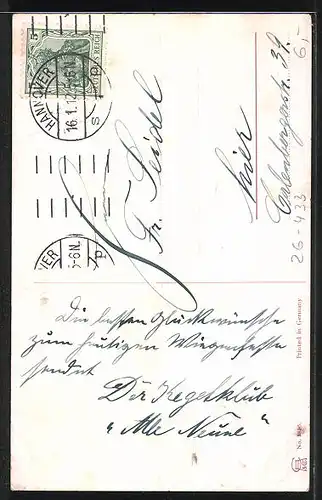 Die besten Glückwünsche
zum heutigen Wiegenfeste
sendet
Der Kegelklub
"Alle Neune"
Fr. Seidel
hier
Calenbergerstr. 39.
6,-
26-433
HANNOVER
16.1.1
5-6N.
S
5
REICH
5-6N.
Printed in Germany
No.